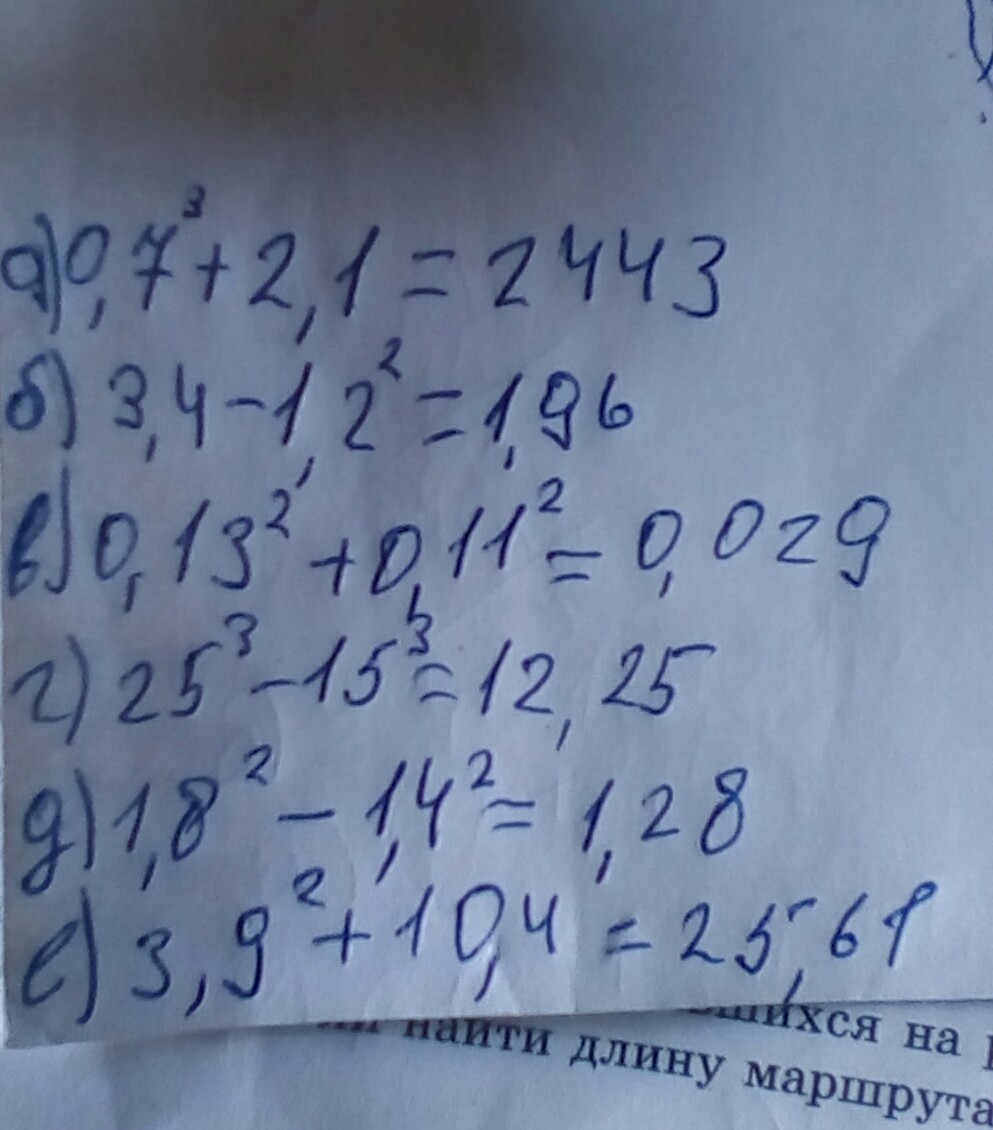 а) 0,7³ + 2,1 = 2443
б) 3,4 - 1,2² = 1,96
в) 0,13² + 0,11² = 0,029
г) 25³ - 15³ = 12,25
д) 1,8² - 1,4² = 1,28
е) 3,9² + 10,4 = 25,61
на
найти длину маршрута